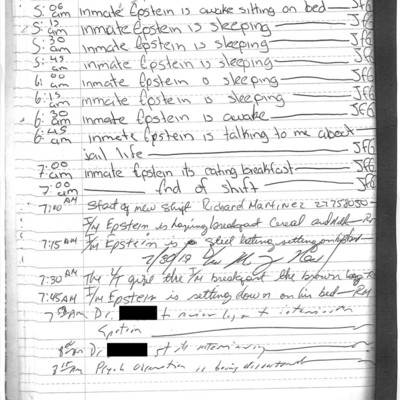 5:06 am Inmate Epstein is awake sitting on bed JFG
5:15 am Inmate Epstein is sleeping JFG
5:30 am Inmate Epstein is sleeping JFG
5:45 am Inmate Epstein is sleeping JFG
6:00 am Inmate Epstein is sleeping JFG
6:15 am Inmate Epstein is sleeping JFG
6:30 am Inmate Epstein is awake JFG
6:45 am Inmate Epstein is talking to me about
jail life JFG
7:00 am Inmate Epstein its eating breakfast JFG
7:00 am End of shift JFG
7:00 AM Start of new shift Richard Martinez
I/M Epstein is having breakfast Cereal and Milk RM
7:15 AM I/M Epstein is still setting
7/30/19
7:30 AM The give the I/M breakfast the brown bag
7:45 AM I/M Epstein is setting down on his bed RM
Dr. to review log
Epstein
Dr. interviewing
8:15 AM Psych Observation is being